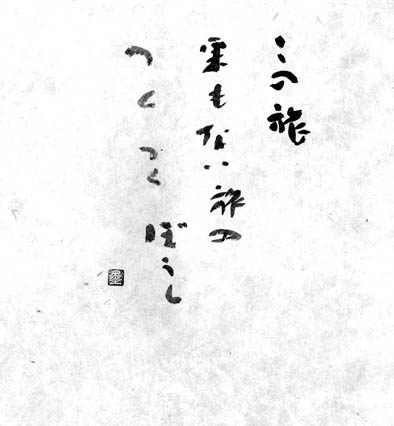 この旅
果もない旅の
つくつくぼうし